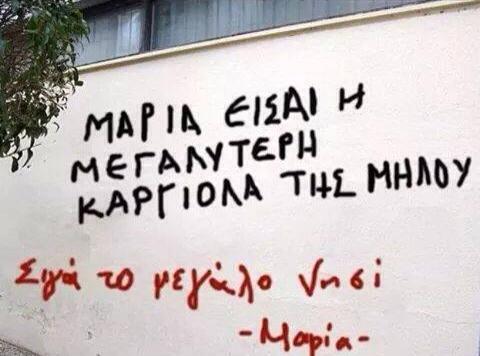 ΜΑΡΙΑ ΕΙΣΑΙ Η
ΜΕΓΑΛΥΤΕΡΗ
ΚΑΡΓΙΟΛΑ ΤΗΣ ΜΗΛΟΥ
Σιγά το μεγάλο νησί
-Μαρία-